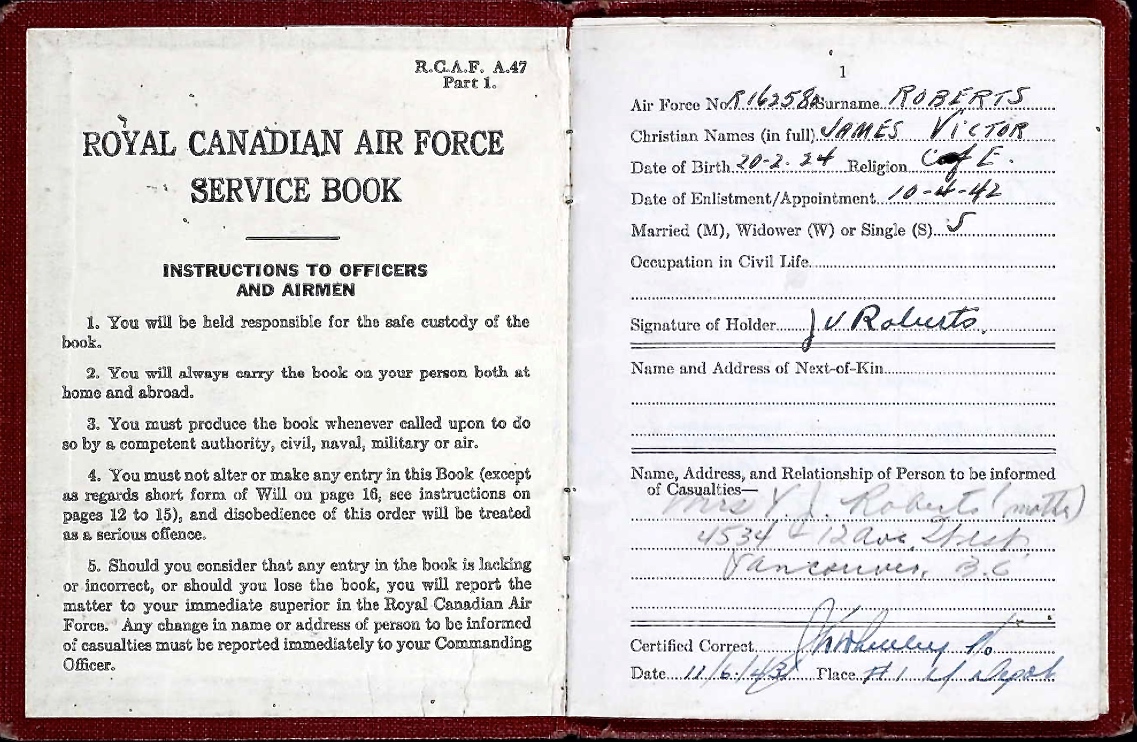 R.C.A.F. A.47
Part 1.
ROYAL CANADIAN AIR FORCE
SERVICE BOOK
INSTRUCTIONS TO OFFICERS
AND AIRMEN
1. You will be held responsible for the safe custody of the
book.
2. You will always carry the book on your person both at
home and abroad.
3. You must produce the book whenever called upon to do
so by a competent authority, civil, naval, military or air.
4. You must not alter or make any entry in this Book (except
as regards short form of Will on page 16, see instructions on
pages 12 to 15), and disobedience of this order will be treated
as a serious offence.
5. Should you consider that any entry in the book is lacking
or incorrect, or should you lose the book, you will report the
matter to your immediate superior in the Royal Canadian Air
Force. Any change in name or address of person to be informed
of casualties must be reported immediately to your Commanding
Officer.
1
Air Force No. Surname ROBERTS
Christian Names (in full) JAMES VICTOR
Date of Birth 20-2-24 Religion C of E.
Date of Enlistment/Appointment 10-4-42
Married (M), Widower (W) or Single (S) S
Occupation in Civil Life
Signature of Holder J V Roberts.
Name and Address of Next-of-Kin
Name, Address, and Relationship of Person to be informed
of Casualties—
Mrs J. Roberts (mother)
4534 12 Ave. West
Vancouver, B.C
Certified Correct
Date 11/6/43 Place #1 Y Depot